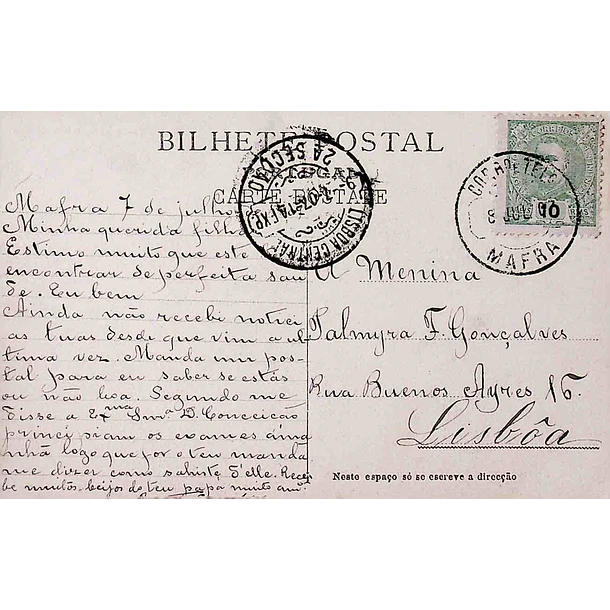 BILHETE POSTAL
PORTUGAL
CARTE POSTALE
LISBOA CENTRAL
2A SECÇÃO
CORR. E TELEG.
8 JUL
MAFRA
CORREIOS
10
Mafra 7 de julho
Minha querida filha
Estimo muito que este
encontrar de perfeita sau
de. Eu bem
Ainda não recebi notici
as tuas desde que vim a ul
tima vez. Manda um pos-
tal para eu saber se estás
ou não boa. Segundo me
disse a Exma Snra D. Conceição
princípiam os exames áma
nhã logo que for o teu manda
me dizer como sahiste d'elle. Rece
be muitos beijos do teu papá muito amo
Á Menina
Palmyra F. Gonçalves
Rua Buenos Ayres 16.
Lisbôa
Nesto espaço só se escreve a direcção